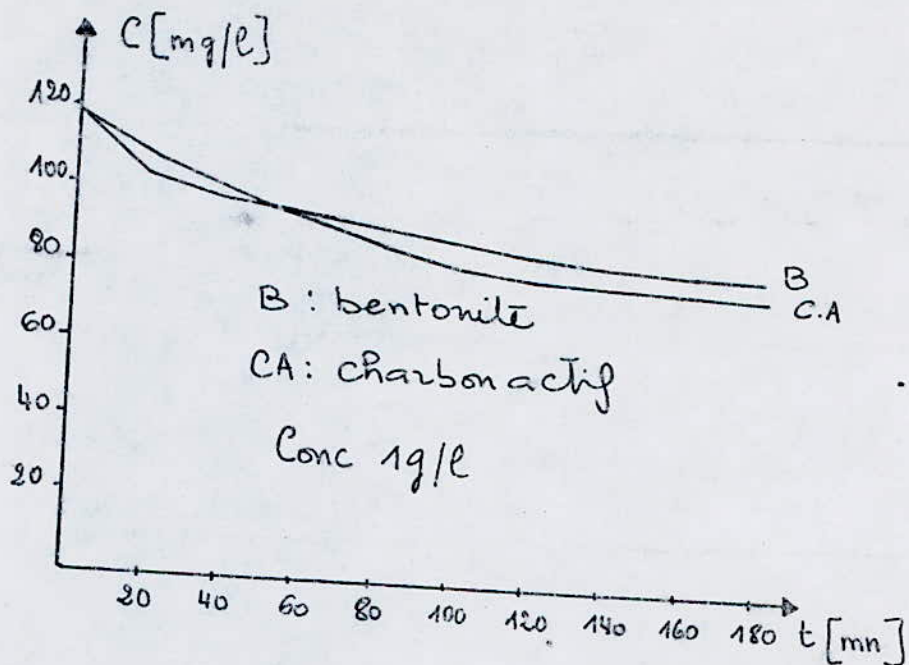 C [mg/l]
120
100
80
60
40
20
B
C.A
B : bentonite
CA : charbon actif
Conc 1g/l
20 40 60 80 100 120 140 160 180 t [mn]